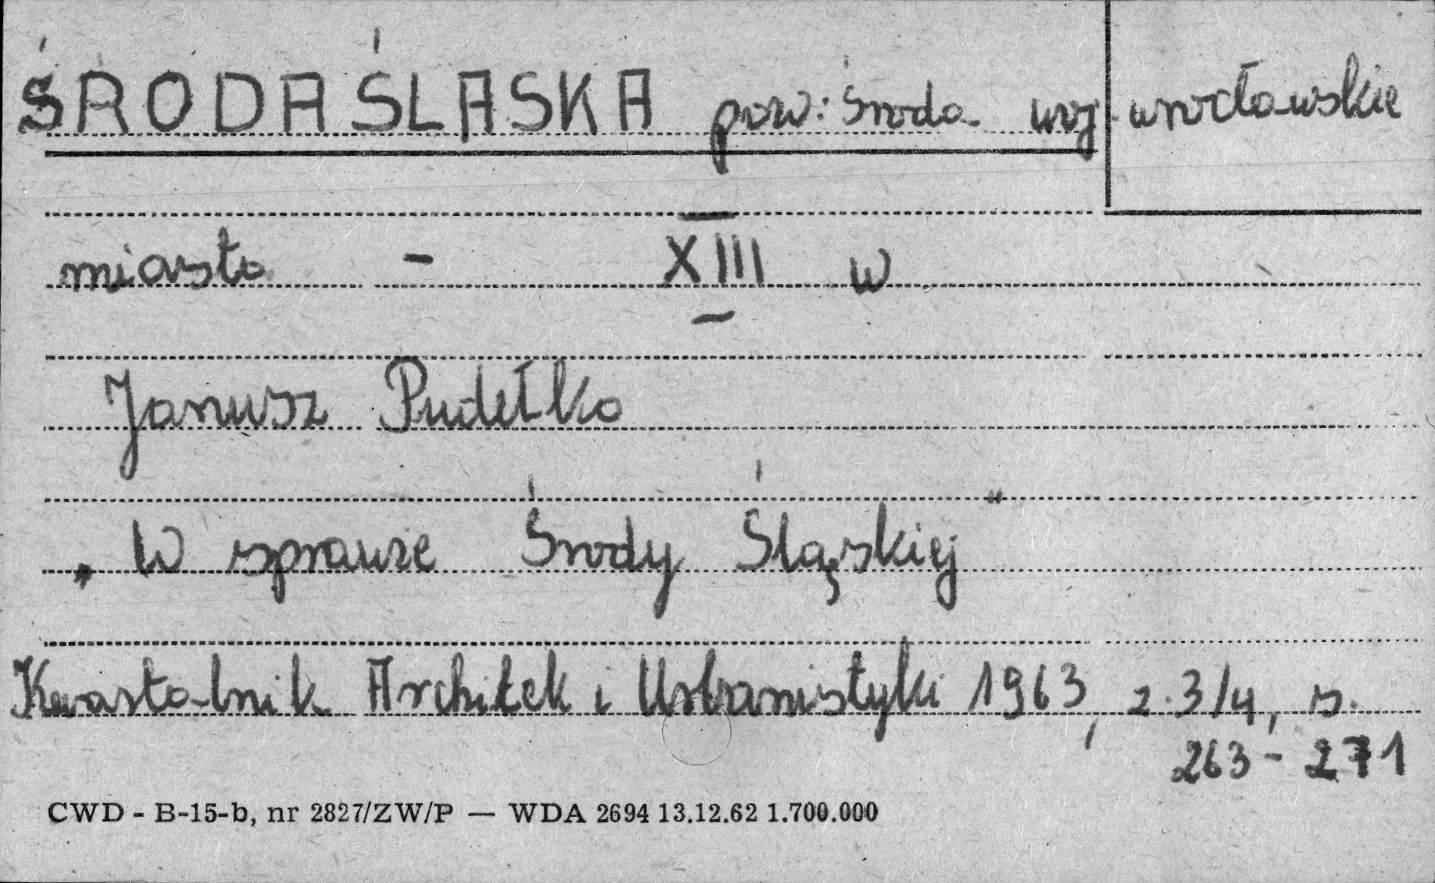 ŚRODA ŚLĄSKA pow: Środa woj. wrocławskie
miasto - XIII w
Janusz Pudełko
„W sprawie Środy Śląskiej"
Kwartalnik Architek i Urbanistyki 1963, z. 3/4, s.
263-271
CWD - B-15-b, nr 2827/ZW/P — WDA 2694 13.12.62 1.700.000